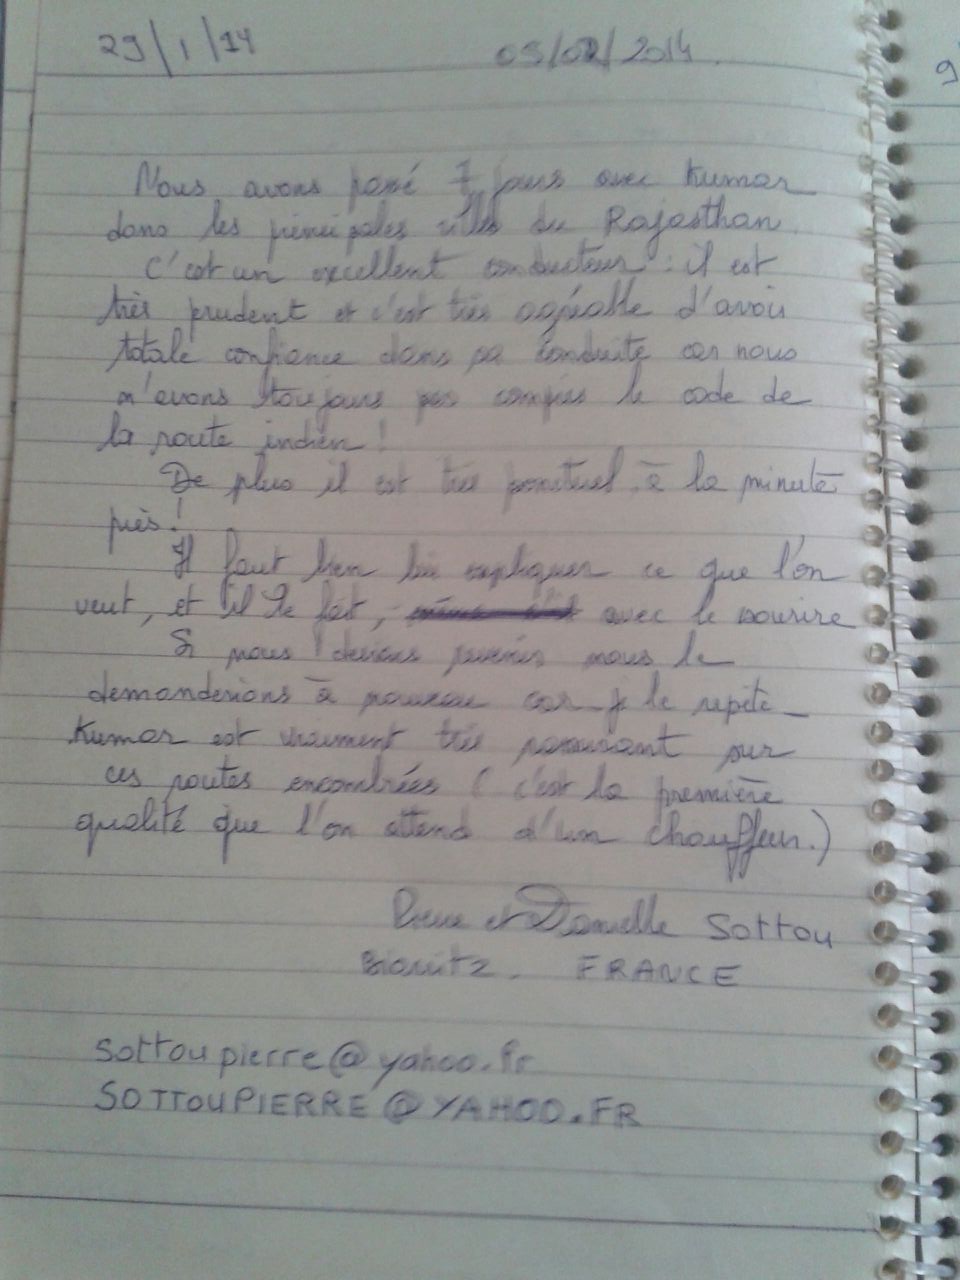 29/1/14 05/02/2014.
Nous avons passé 7 jours avec Kumar
dans les principales villes du Rajasthan.
C'est un excellent conducteur : il est
très prudent et c'est très agréable d'avoir
totale confiance dans sa conduite car nous
n'avons toujours pas compris le code de
la route indien !
De plus il est très ponctuel, à la minute
près !
Il faut bien lui expliquer ce que l'on
veut, et il le fait, avec le sourire
Si nous devions revenir nous le
demanderions à nouveau car je le repète
Kumar est vraiment très rassurant sur
ces routes encombrées (c'est la première
qualité que l'on attend d'un chauffeur.)
Pierre et Danielle Sottou
Biarritz. FRANCE
sottoupierre@yahoo.fr
SOTTOUPIERRE@YAHOO.FR